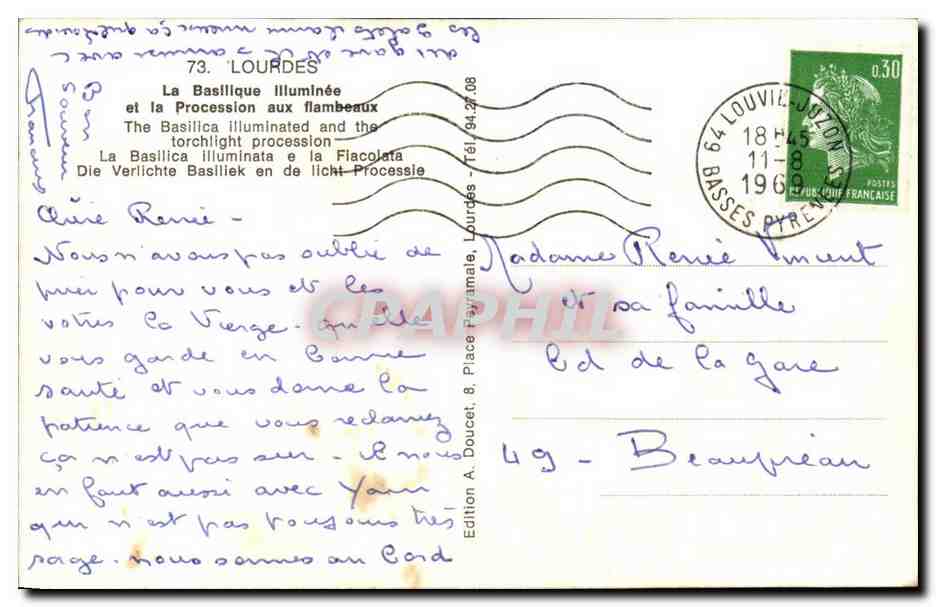 73. LOURDES
La Basilique Illuminée
et la Procession aux flambeaux
The Basilica illuminated and the
torchlight procession
La Basilica illuminata e la Fiacolata
Die Verlichte Basiliek en de licht Processie
Chère Renée -
Nous n'avons pas oublié de
prier pour vous et les
votres la Vierge - qu'elle
vous garde en bonne
santé et vous donne la
patience que vous réclamez
ça n'est pas sur - Il nous
en faut aussi avec Yann
qui n'est pas toujours très
sage - nous sommes au bord
du gave et il s'amuse avec
les galets il aime mieux ça
Bon
Souvenir
Edition A. Doucet, 8, Place Peyramale, Lourdes - Tél. 94.27.08
64 LOUVIE-JUZON
18H45
11-8
1969
BASSES PYRENEES
0,30
POSTES
REPUBLIQUE FRANÇAISE
Madame Renée Vincent
et sa famille
Bd de la Gare
49 - Beaupréau
CPAPHIL